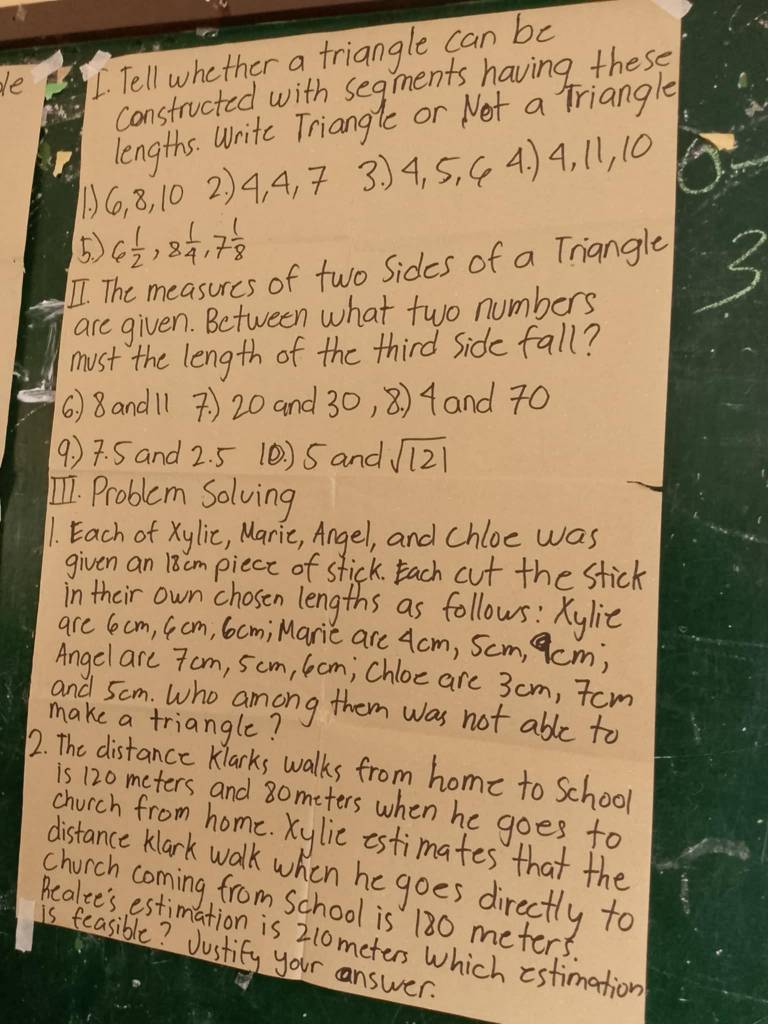 le
I. Tell whether a triangle can be
constructed with segments having these
lengths. Write Triangle or Not a Triangle
1.) 6, 8, 10 2.) 4, 4, 7 3.) 4, 5, 6 4.) 4, 11, 10
5.) 6 1/2, 8 1/4, 7 1/8
II. The measures of two Sides of a Triangle
are given. Between what two numbers
must the length of the third Side fall?
6.) 8 and 11 7.) 20 and 30, 8.) 4 and 70
9.) 7.5 and 2.5 10.) 5 and √121
III. Problem Solving
1. Each of Xylie, Marie, Angel, and Chloe was
given an 18cm piece of stick. Each cut the stick
in their own chosen lengths as follows: Xylie
are 6cm, 6cm, 6cm; Marie are 4cm, 5cm, 9cm;
Angel are 7cm, 5cm, 6cm; Chloe are 3cm, 7cm
and 5cm. Who among them was not able to
make a triangle?
2. The distance Klarks walks from home to School
is 120 meters and 80meters when he goes to
church from home. Xylie estimates that the
distance Klark walk when he goes directly to
Church coming from School is 180 meters.
Realee's estimation is 210 meters which estimation
is feasible? Justify your answer.
3